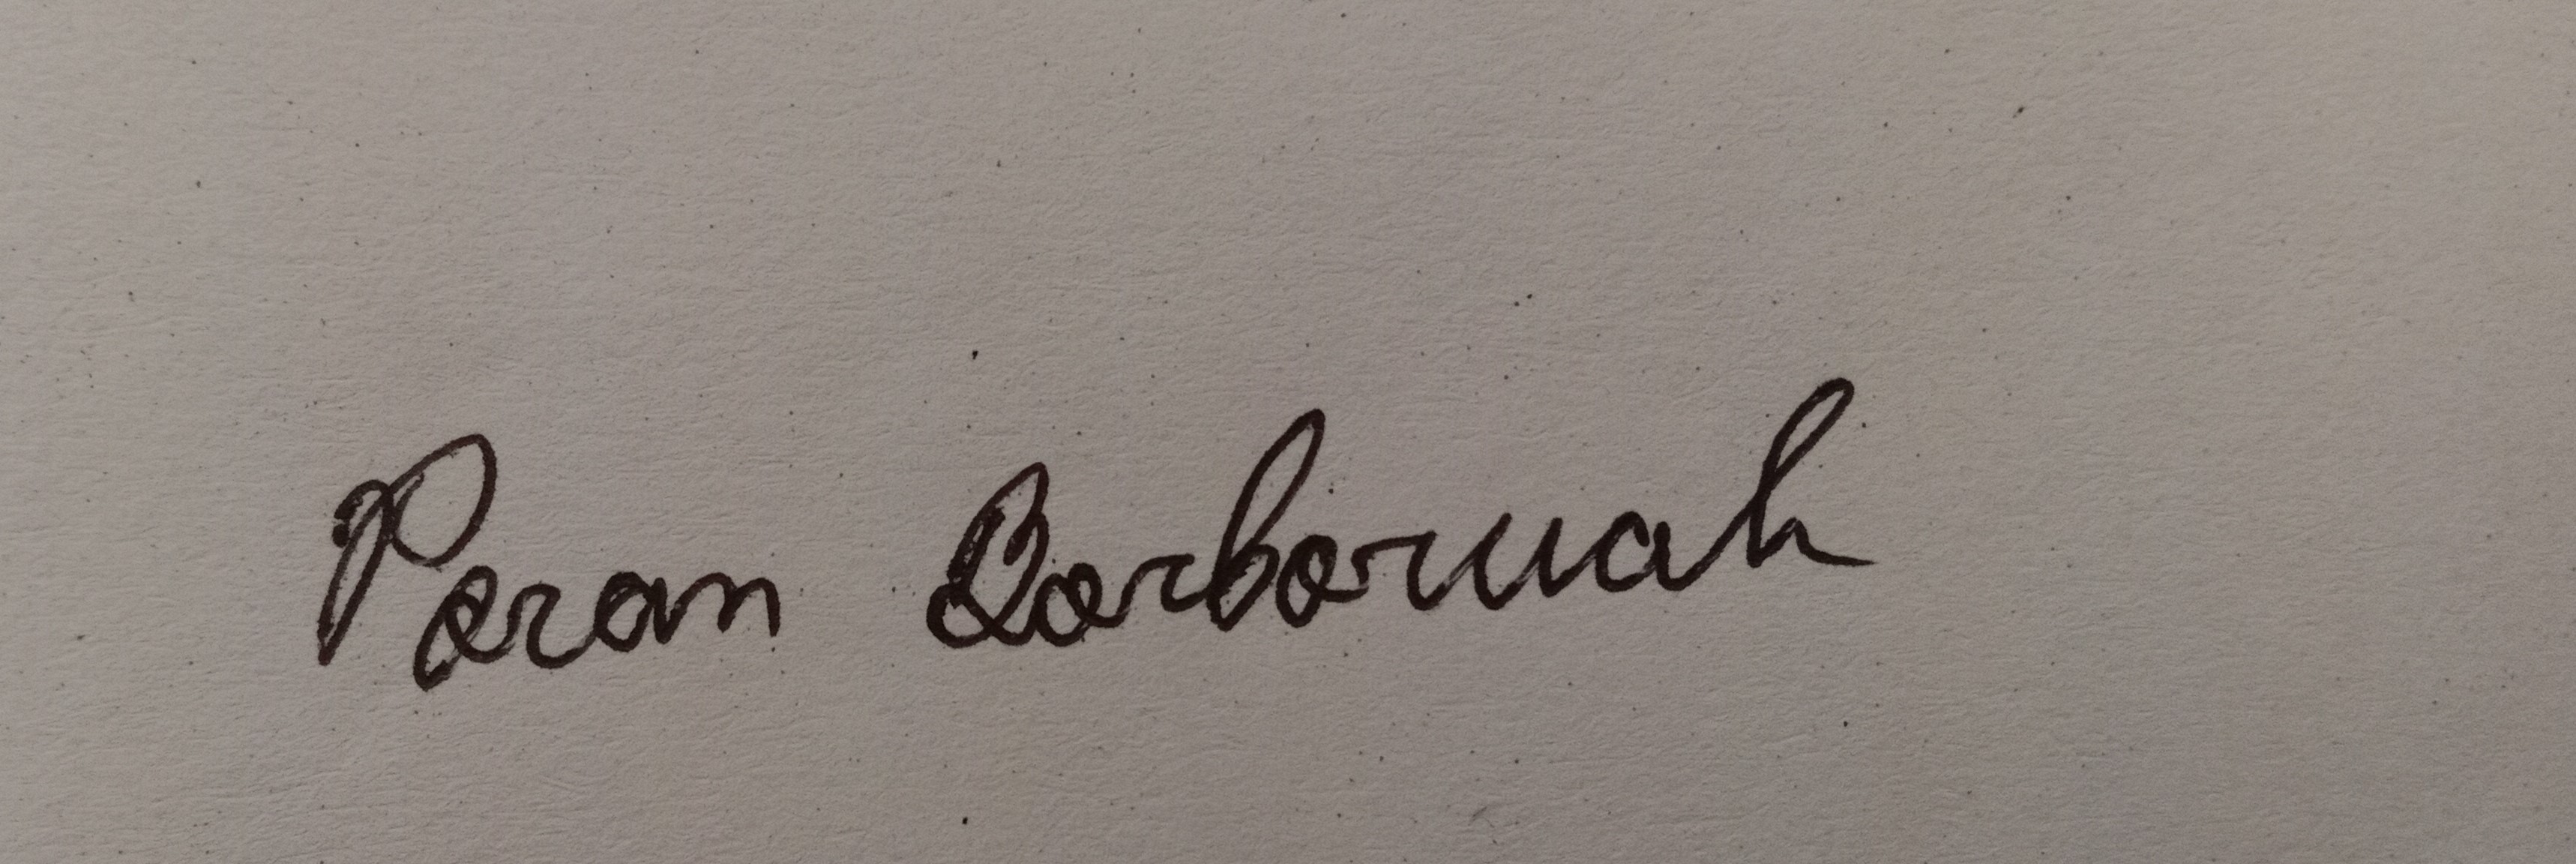 Paran Borboruah